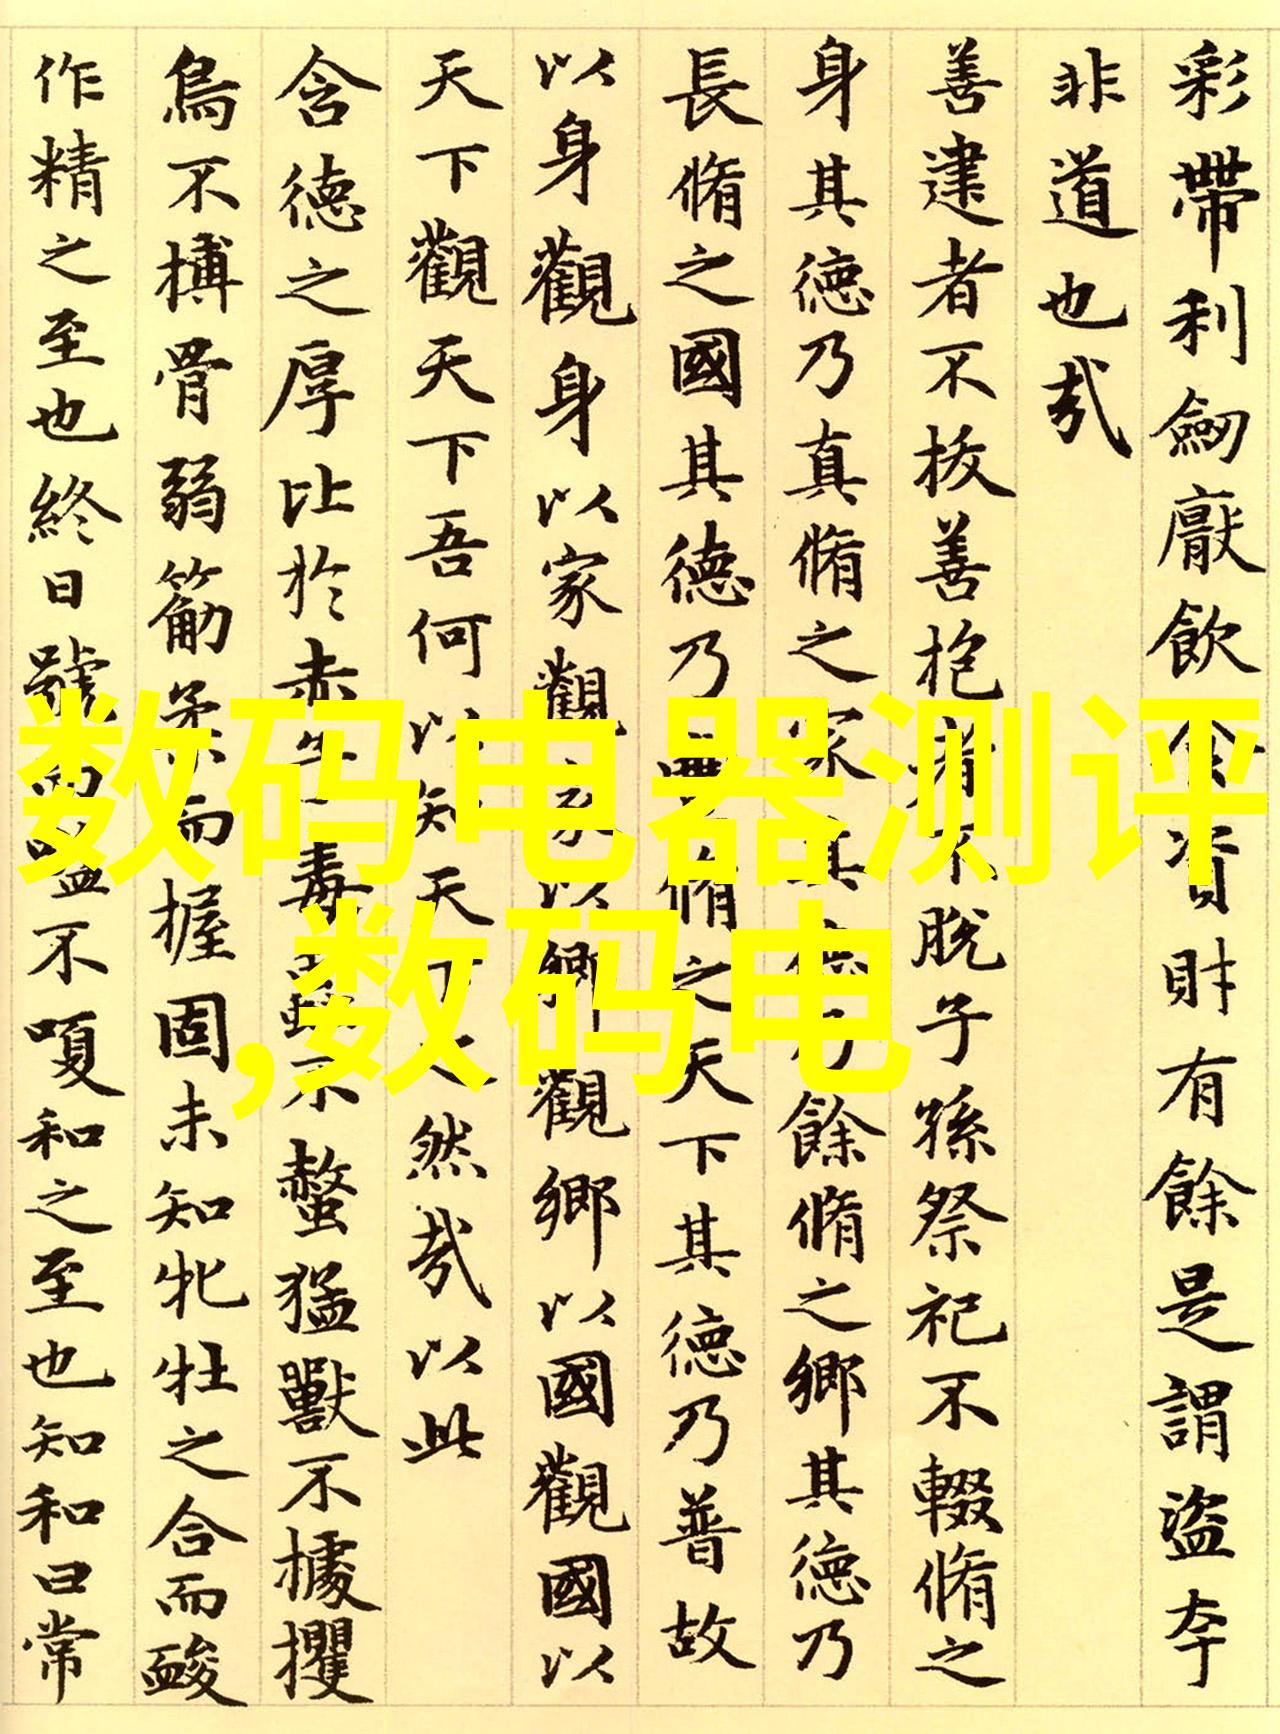 彩帶利劒厭飲食資財有餘是謂盜夸
非道也哉
善建者不拔善抱者不脫子孫祭祀不輟脩之
身其德乃真脩之家其德乃餘脩之鄉其德乃
長脩之國其德乃豐脩之天下其德乃普故
以身觀身以家觀家以鄉觀鄉以國觀國以
天下觀天下吾何以知天下之然哉以此
含德之厚比於赤子毒蟲不螫猛獸不據攫
鳥不搏骨弱筋柔而握固未知牝牡之合而䘒
作精之至也終日號而嗌不嗄和之至也知和曰常
数码电器测评
,数码电